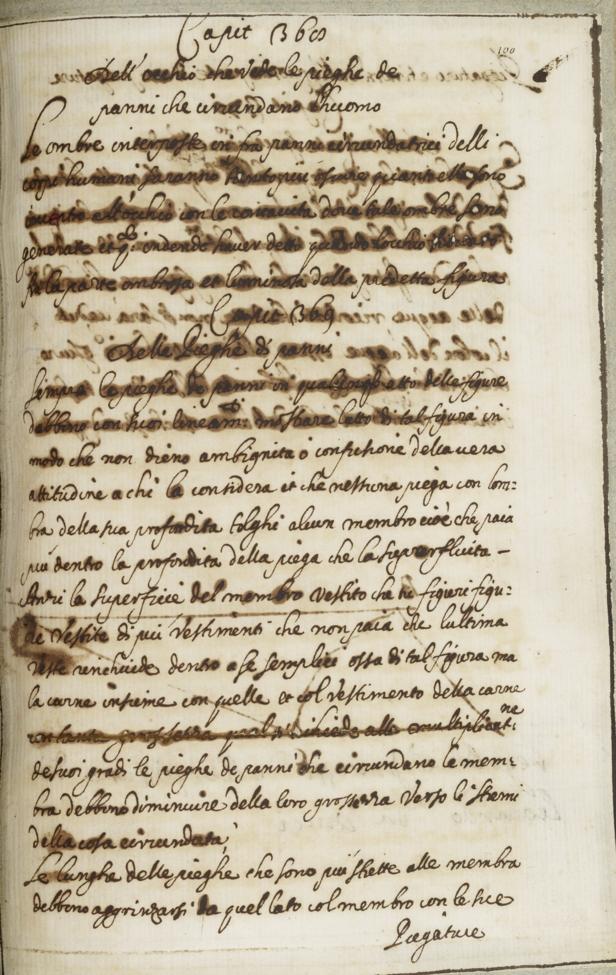 Capit 360
100
Dell' occhio che vede le pieghe de
panni che circundano l'huomo
Le ombre interposte in fra panni circundatrici delli
corpi humani saranno tanto piu oscure quanto elle sono
incontro all'occhio con le concavita dove tale ombre sono
generate et q.º intendo haver detto quando l'occhio
fra la parte ombrosa et luminosa della predetta figura
Capit 369
Delle Pieghe di panni
Sempre le pieghe de panni in qualunq atto delle figure
debbono con suoi lineam.ti mostrare l'atto di tal figura in
modo che non dieno ambiguita o confusione della vera
attitudine a chi la considera et che nessuna piega con lom:
bra della sua profondita tolghi alcun membro cioè che paia
piu dentro la profondita della piega che la superfluita –
Anzi la superficie del membro vestito che tu figuri figu:
re vestite di piu vestimenti che non paia che lultima
veste rinchiude dentro a se semplici ossa di tal figura ma
la carne insieme con quelle et col vestimento della carne
con tanta grossezza qual si richiede alla multiplicat.ne
de suoi gradi le pieghe de panni che circundano le mem:
bra debbono diminuire della loro grossezza verso li stremi
della cosa circundata,
Le lungha delle pieghe che sono piu strette alle membra
debbono aggrinzarsi da quel lato col membro con le sue
Piegature